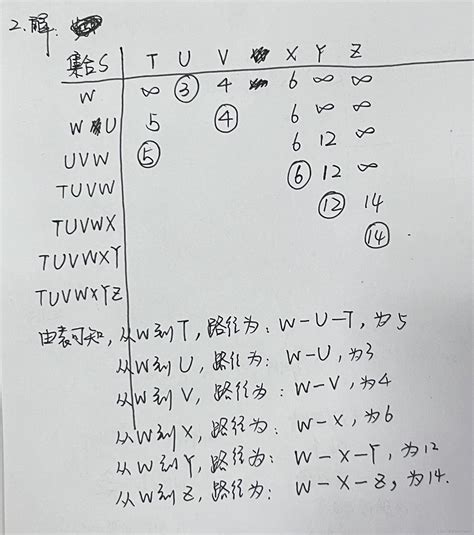 2.解:
集合S T U V X Y Z
W ∞ ③ 4 6 ∞ ∞
W U 5 ④ 6 ∞ ∞
UVW ⑤ 6 12 ∞
TUVW ⑥ 12 ∞
TUVWX ⑫ 14
TUVWXY ⑭
TUVWXYZ
由表可知,从W到T,路径为: W-U-T,为5
从W到U,路径为: W-U,为3
从W到V,路径为: W-V,为4
从W到X,路径为: W-X,为6
从W到Y,路径为: W-X-Y,为12
从W到Z,路径为: W-X-Z,为14.